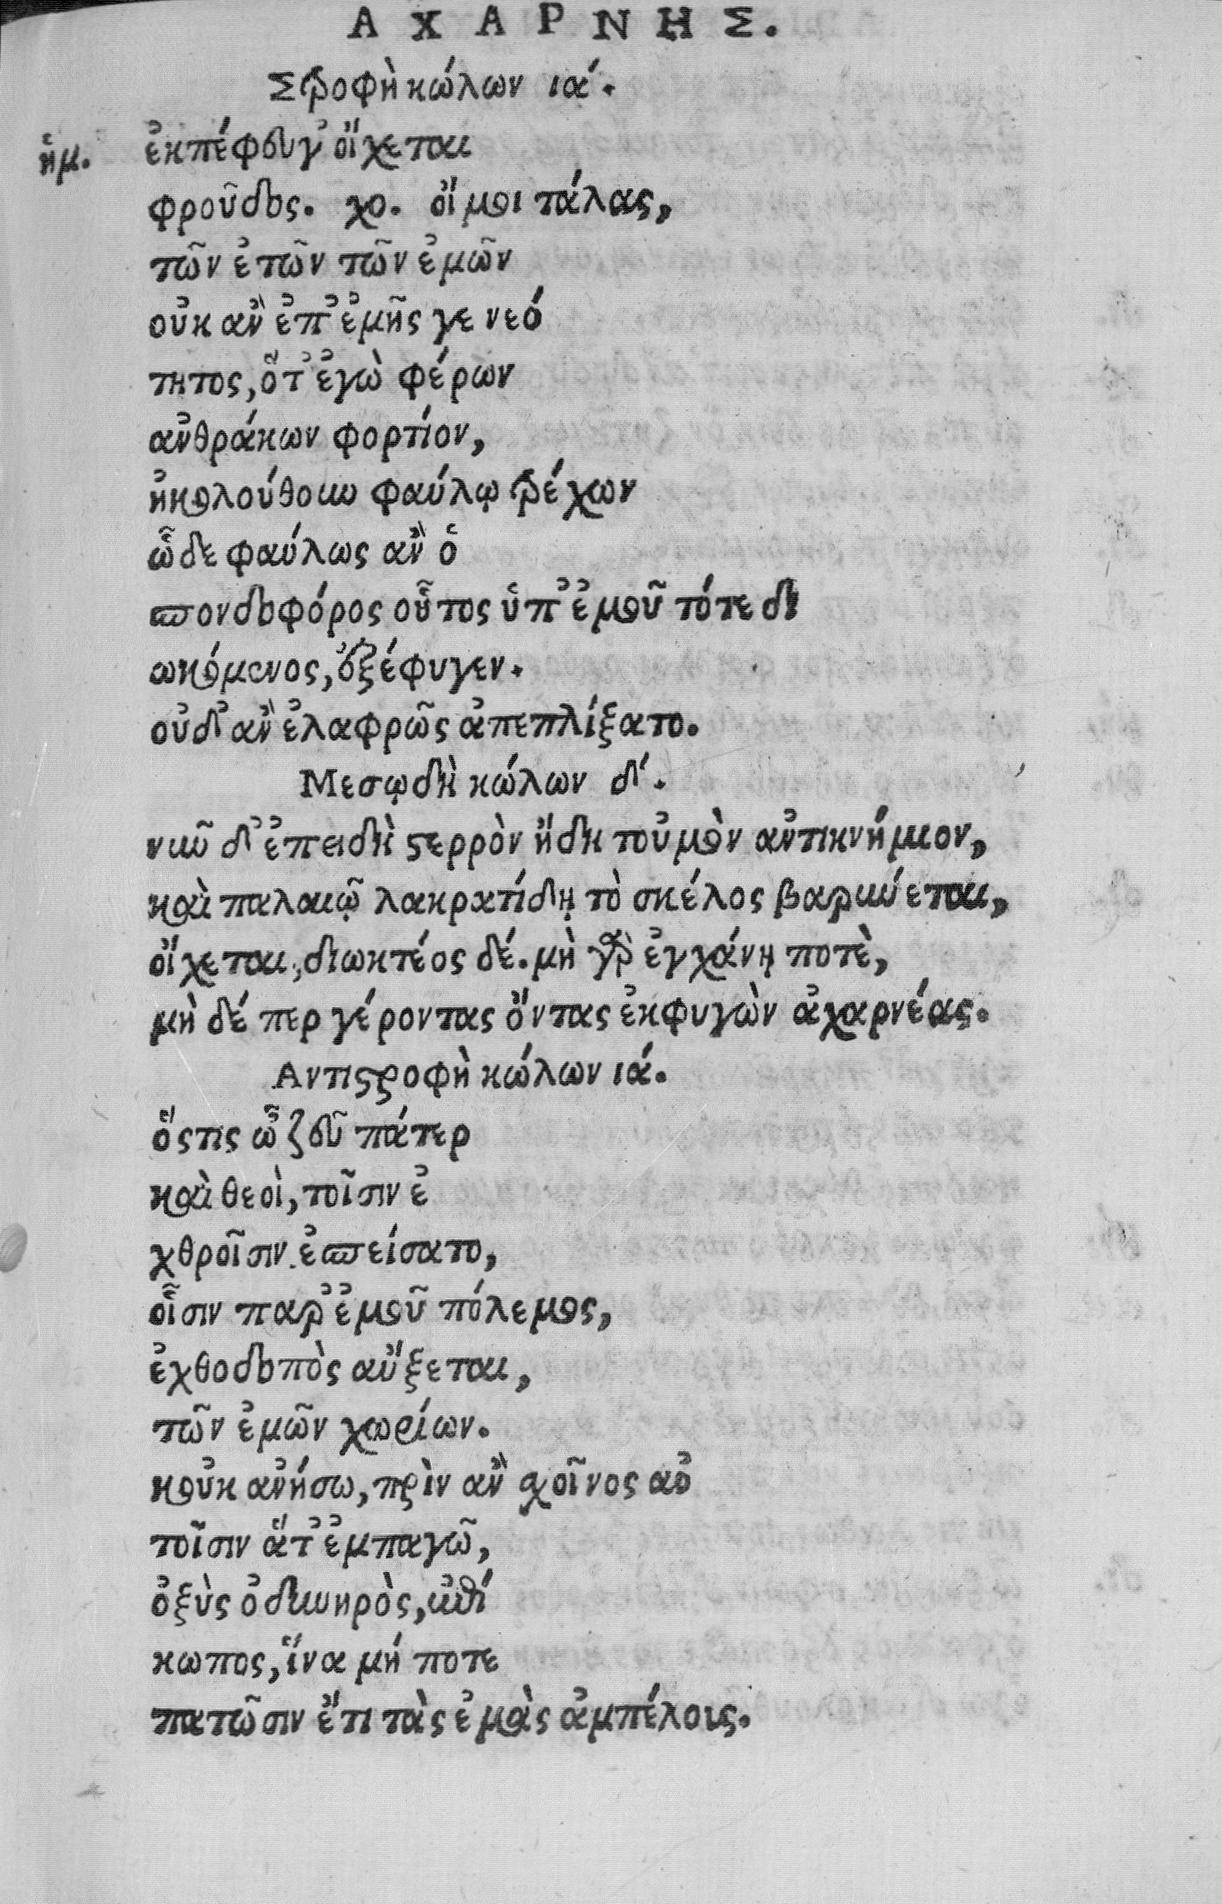 ΑΧΑΡΝΗΣ.
Στροφὴ κώλων ιά.
ἡμ. ἐκπέφευγ' οἴχεται
φροῦδος. χο. οἴμοι τάλας,
τῶν ἐτῶν τῶν ἐμῶν
οὐκ ἂν ἐπ' ἐμῆς γε νεό
τητος, ὅτ' ἐγὼ φέρων
ἀνθράκων φορτίον,
ἠκολούθουν φαύλῳ τρέχων
ὧδε φαύλως ἂν ὁ
σπονδοφόρος οὗτος ὑπ' ἐμοῦ τότε δι
ωκόμενος, ἐξέφυγεν.
οὐδ' ἂν ἐλαφρῶς ἀπεπλίξατο.
Μεσῳδὴ κώλων δ'.
νῦν δ' ἐπειδὴ στερρὸν ἤδη τοὐμὸν ἀντικνήμιον,
καὶ παλαιῷ λακρατίδῃ τὸ σκέλος βαρύνεται,
οἴχεται, διωκτέος δέ. μὴ γὰρ ἐγχάνῃ ποτὲ,
μὴ δέ περ γέροντας ὄντας ἐκφυγὼν ἀχαρνέας.
Αντιστροφὴ κώλων ιά.
ὅστις ὦ ζεῦ πάτερ
καὶ θεοὶ, τοῖσιν ἐ
χθροῖσιν ἐσπείσατο,
οἷσιν παρ' ἐμοῦ πόλεμος,
ἐχθοδοπὸς αὔξεται,
τῶν ἐμῶν χωρίων.
κοὐκ ἀνήσω, πρὶν ἂν σχοῖνος αὐ
τοῖσιν ἅτ' ἐμπαγῶ,
ὀξὺς ὀδυνηρὸς, ἐπί
κωπος, ἵνα μή ποτε
πατῶσιν ἔτι τὰς ἐμὰς ἀμπέλους.